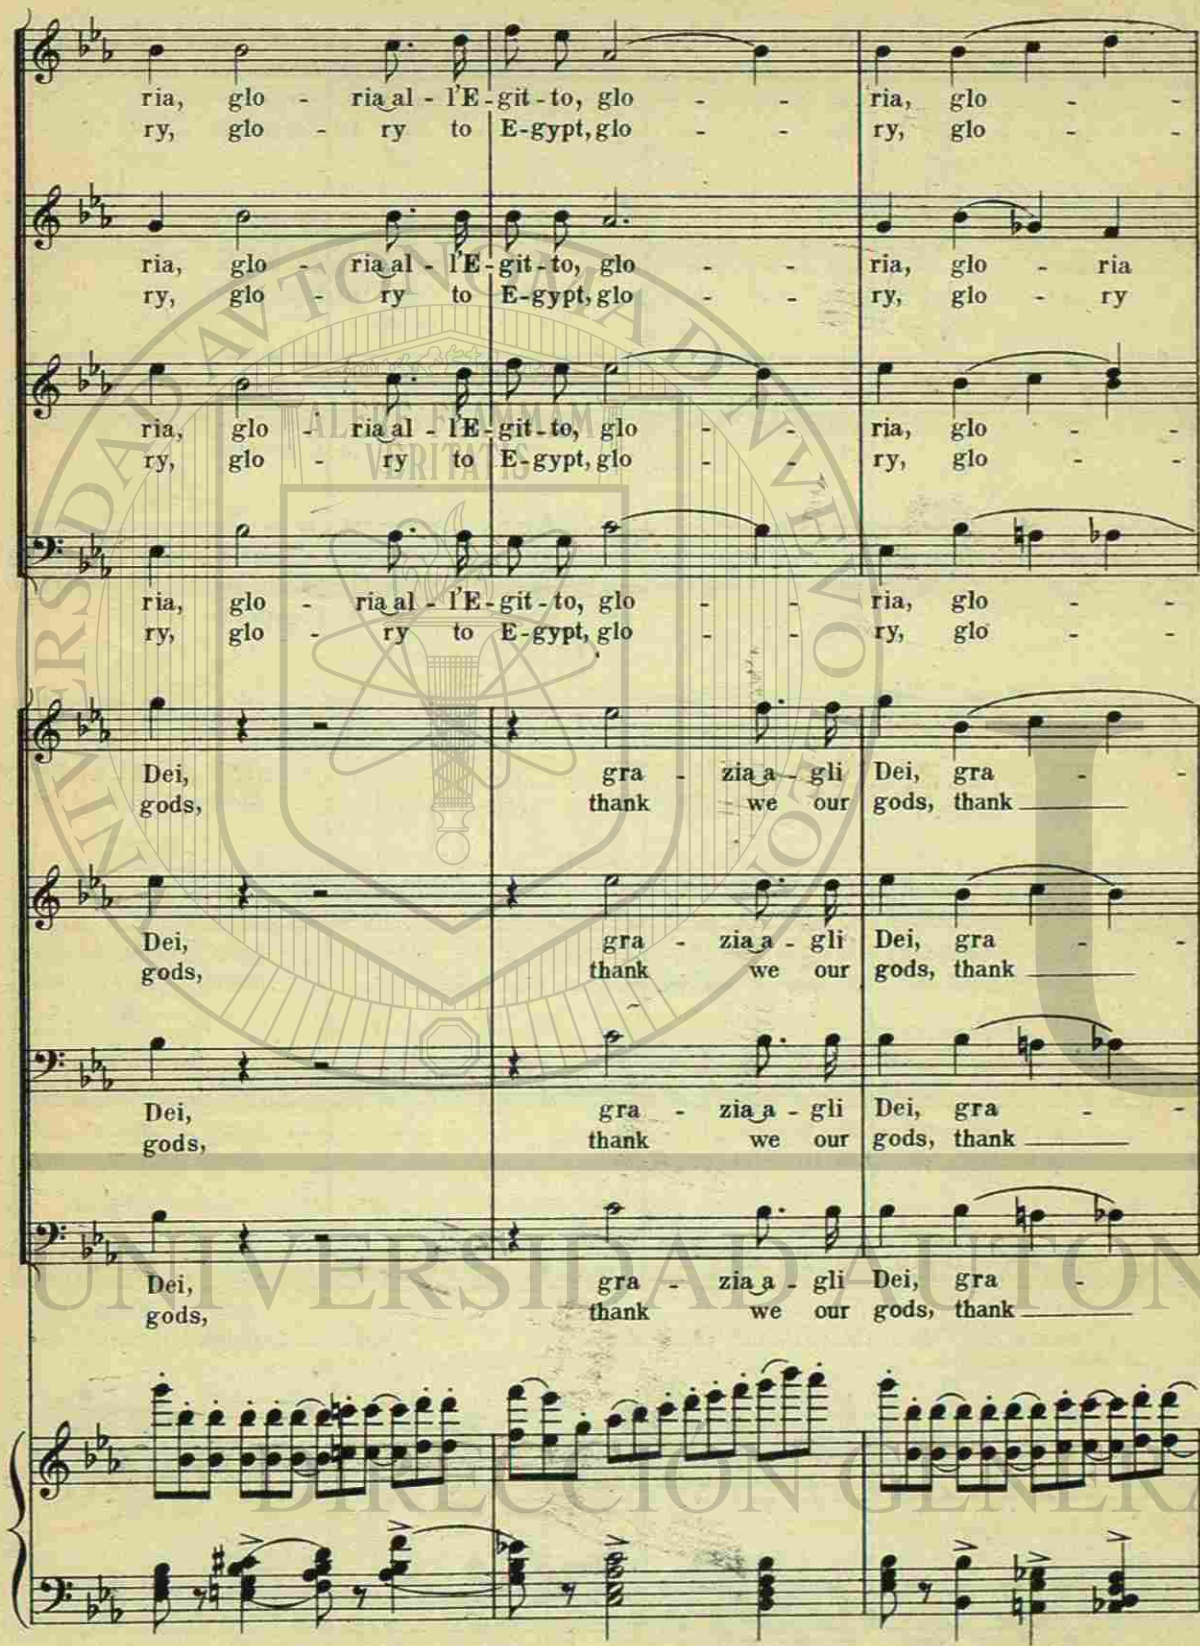 ria, glo - ria al - l'E - git - to, glo - - ria, glo - -
ry, glo - ry to E - gypt, glo - - ry, glo - -
ria, glo - ria al - l'E - git - to, glo - - ria, glo - ria
ry, glo - ry to E - gypt, glo - - ry, glo - ry
ria, glo - ria al - l'E - git - to, glo - - ria, glo - -
ry, glo - ry to E - gypt, glo - - ry, glo - -
ria, glo - ria al - l'E - git - to, glo - - ria, glo - -
ry, glo - ry to E - gypt, glo - - ry, glo - -
Dei, gra - zia a - gli Dei, gra - -
gods, thank we our gods, thank
Dei, gra - zia a - gli Dei, gra - -
gods, thank we our gods, thank
Dei, gra - zia a - gli Dei, gra - -
gods, thank we our gods, thank
Dei, gra - zia a - gli Dei, gra -
gods, thank we our gods, thank
UNIVERSIDAD AUTONOMA D NVEVO LEON
ALERE FLAMMAM
VERITATIS
UNIVERSIDAD AUTON
DIRECCION GENERA